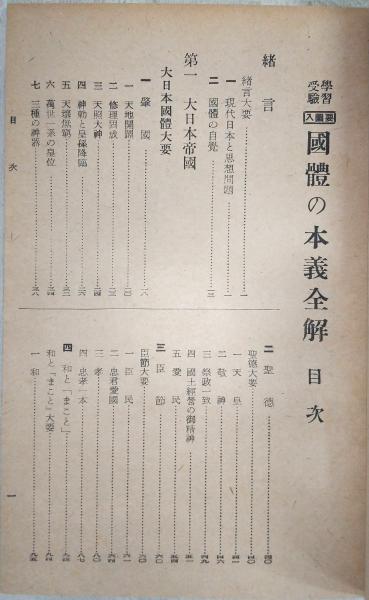 學習
受驗
入圖要
國體の本義全解 目次
緒言
緒言大要……一
一 現代日本と思想問題……一
二 國體の自覺……三
第一 大日本帝國
大日本國體大要
一 肇國……一六
一 天地開闢……二〇
二 修理固成……二二
三 天照大神……二四
四 神勅と皇孫降臨……二六
五 天壤無窮……三二
六 萬世一系の皇位……三四
七 三種の神器……三八
二 聖德……四〇
聖德大要……四〇
一 天皇……四一
二 敬神……四六
三 祭政一致……四九
四 國土經營の御精神……五一
五 愛民……五四
三 臣節……六〇
臣節大要……六〇
一 臣民……六一
二 忠君愛國……六四
三 孝……八〇
四 忠孝一本……八七
四 和と「まこと」……九四
和と「まこと」大要……九四
一 和……九五
目次
一